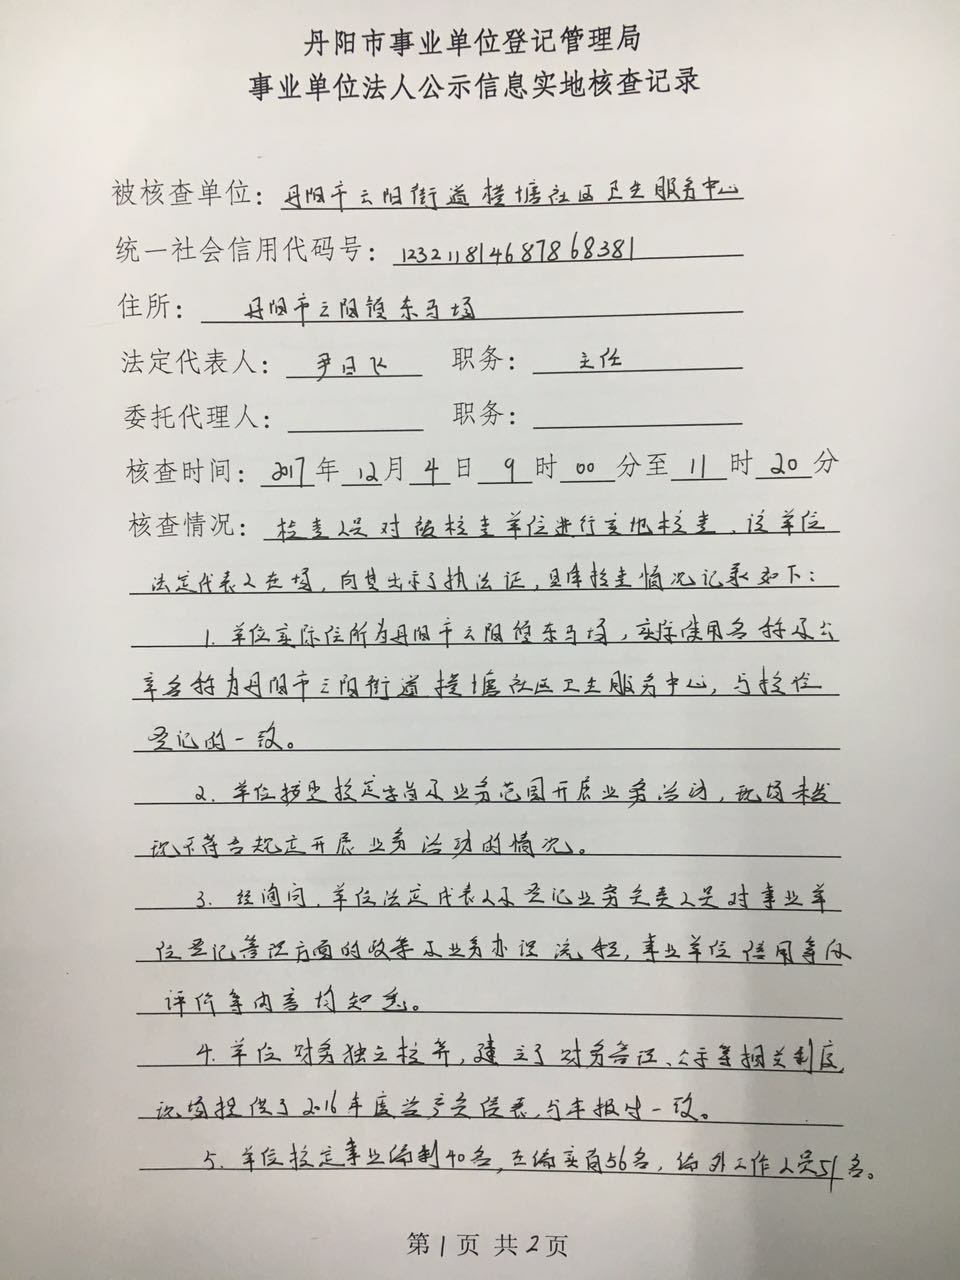 丹阳市事业单位登记管理局
事业单位法人公示信息实地核查记录
被核查单位：丹阳市云阳街道横塘社区卫生服务中心
统一社会信用代码号：12321181468786838 1
住所：丹阳市云阳镇东马场
法定代表人：尹日飞 职务：主任
委托代理人： 职务：
核查时间：2017年12月4日9时00分至11时20分
核查情况：检查人员对被核查单位进行实地核查，该单位
法定代表人在场，向其出示了执法证，具体检查情况记录如下：
1. 单位实际住所为丹阳市云阳镇东马场，实际使用名称及公
章名称为丹阳市云阳街道横塘社区卫生服务中心，与核准
登记的一致。
2. 单位按照核定宗旨及业务范围开展业务活动，现场未发
现不符合规定开展业务活动的情况。
3. 经询问，单位法定代表人及登记业务负责人员对事业单
位登记管理方面的政策及业务办理流程，事业单位信用等级
评价等内容均知悉。
4. 单位财务独立核算，建立了财务管理、公示等相关制度，
现场提供了2016年度资产负债表，与年报时一致。
5. 单位核定事业编制40名，在编实有56名，编外工作人员51名。
第1页 共2页